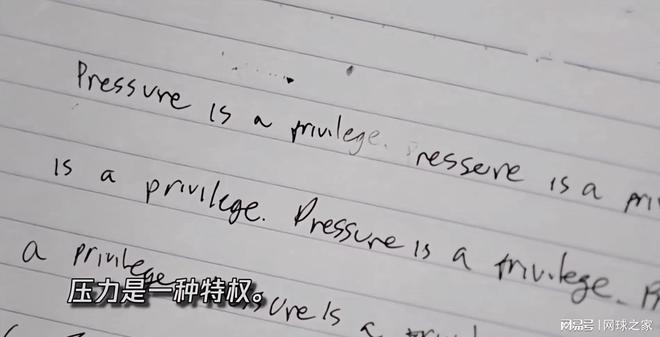 Pressure is a privilege. ressere is a pri
is a privilege. Pressure is a privilege. Pr
a privilege
sure is a
压力是一种特权。
网易号 | 网球之家